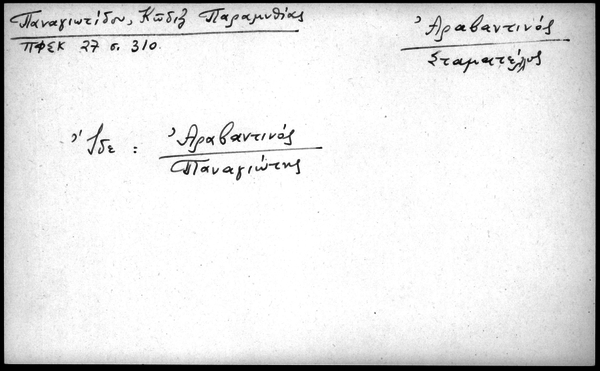 Παναγιωτίδου, Κῶδιξ Παραμυθίας
ΠΦΣΚ 27 σ. 310.
Ἀραβαντινός
Σταματέλος
Ἴδε : Ἀραβαντινός
Παναγιώτης